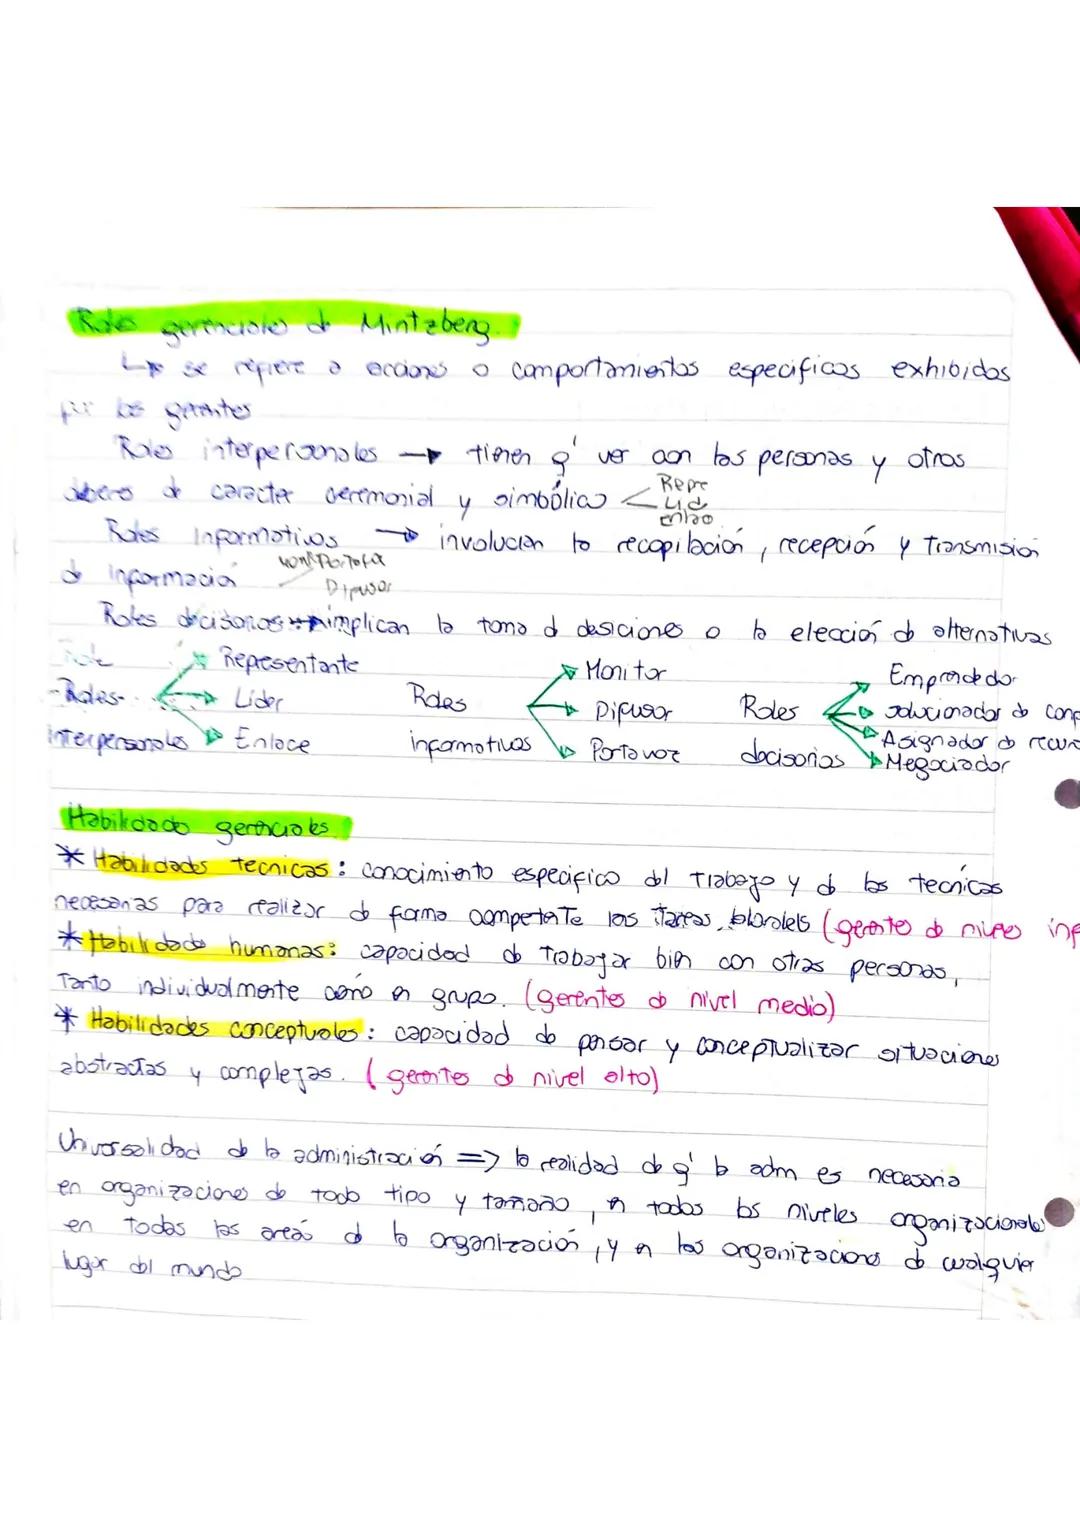 Roles gerenciales de Mintzberg.
se refiere a acciones o comportamientos especificos exhibidos
por los gerentes
Roles interpersonales → tienen q' ver con las personas y otros
debers de caracter ceremonial y simbólico Repre
Lid
enlac
Roles Informativos → involucran la recopilación, recepción y Transmisión
de información
Difusor
Roles decisorios → implican la toma d desiciones o la elección de alternativas
Role
-Roles-
interpersonales
Representante
Lider
Enlace
Roles
informativos
Monitor
Difusor
Portavoz
Roles
decisorios
Emprendedor
solucionador de conf
Asignador de recur
Negociador
Habilidades gerenciales.
* Habilidades tecnicas: conocimiento especifico del Trabajo y de las tecnicas
necesarias para realizar de forma competente las tareas (gerentes de niveles inf
* Habilidades humanas: capacidad de Trabajar bien con otras personas,
Tanto individualmente cómo en grupo. (gerentes de nivel medio)
* Habilidades conceptuales: capacidad de pensar y conceptualizar situaciones
abstractas y complejas. (gerentes de nivel alto)
Universalidad de la administración => la realidad de q' la adm es necesaria
en organizaciones de todo tipo y tamaño, en todos los niveles organizacionales
en todas las areas d la organización, y en las organizaciones de cualquier
lugar del mundo